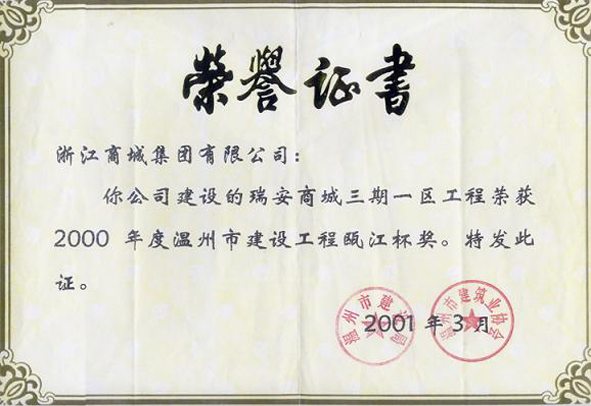 荣誉证书
浙江商城集团有限公司：
你公司建设的瑞安商城三期一区工程荣获
2000 年度温州市建设工程瓯江杯奖。特发此
证。
温州市建设局
温州市建筑业协会
2001 年 3 月